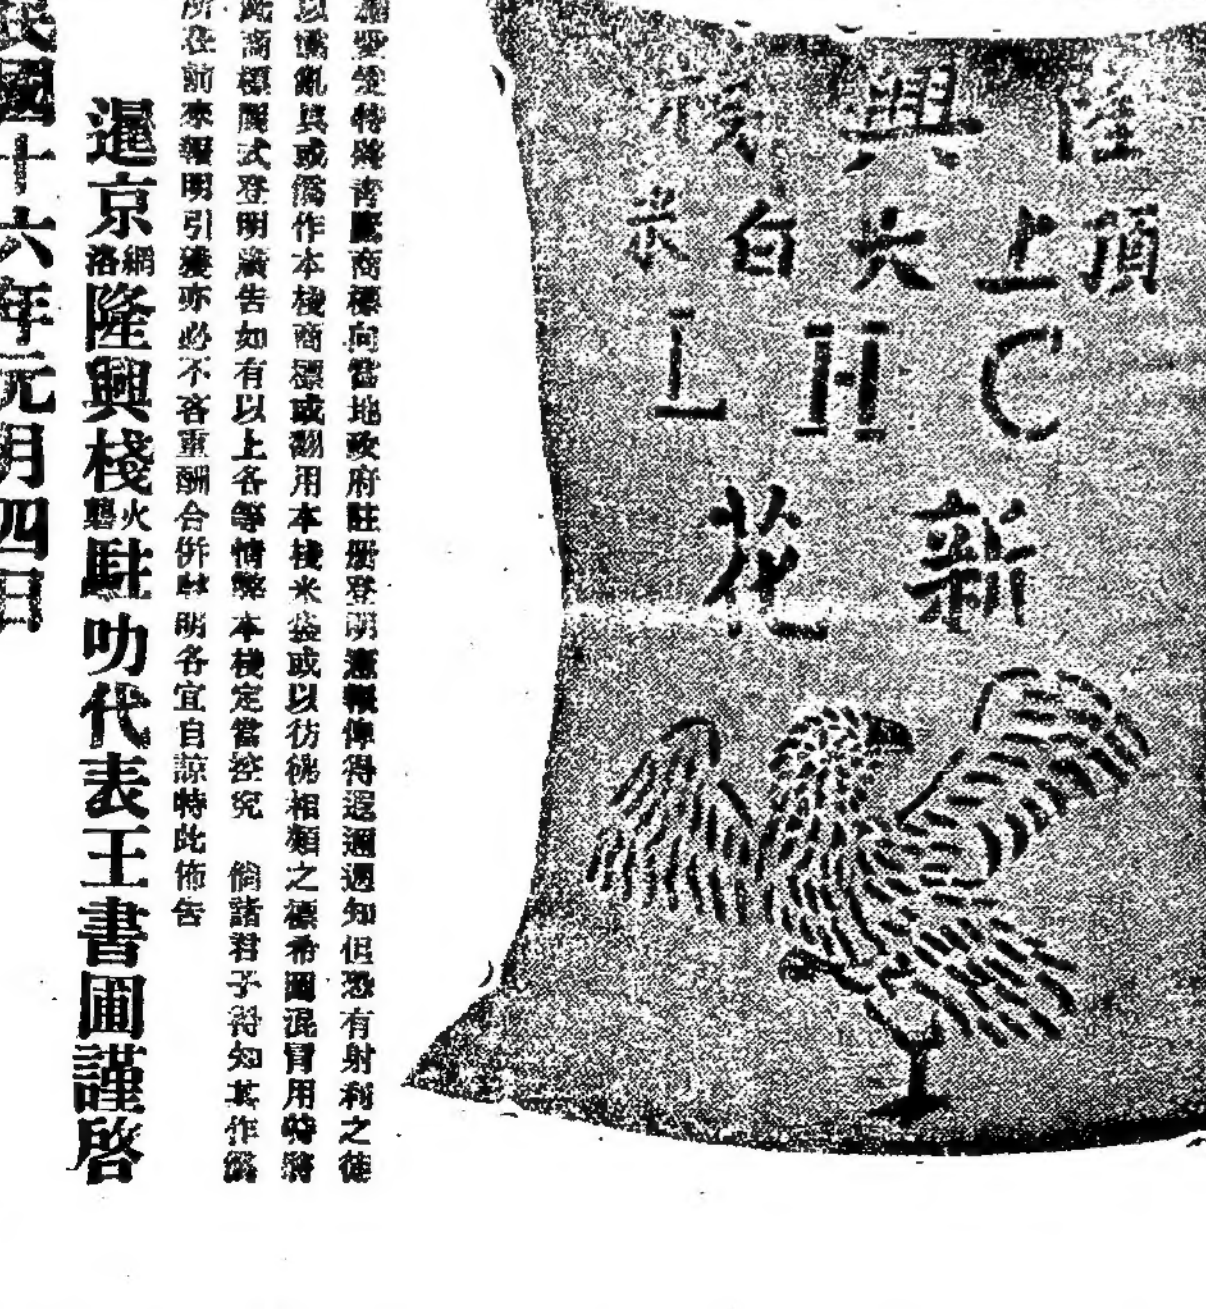 隆興棧
頂上大白米
L H C
新花
特將青鷹商標向當地政府註册登明憲報俾得遐邇週知但恐有射利之徒
以亂真或僞作本棧商標或翻用本棧米袋或以彷彿相類之標希圖混冒用特將
此商標圖式登明廣告如有以上各等情弊本棧定當控究　倘諸君子得知某作僞
所在前來報明引獲亦必不吝重酬合併聲明各宜自諒特此佈告
暹京網洛隆興棧火礱駐叻代表王書圃謹啓
民國十六年元月四日